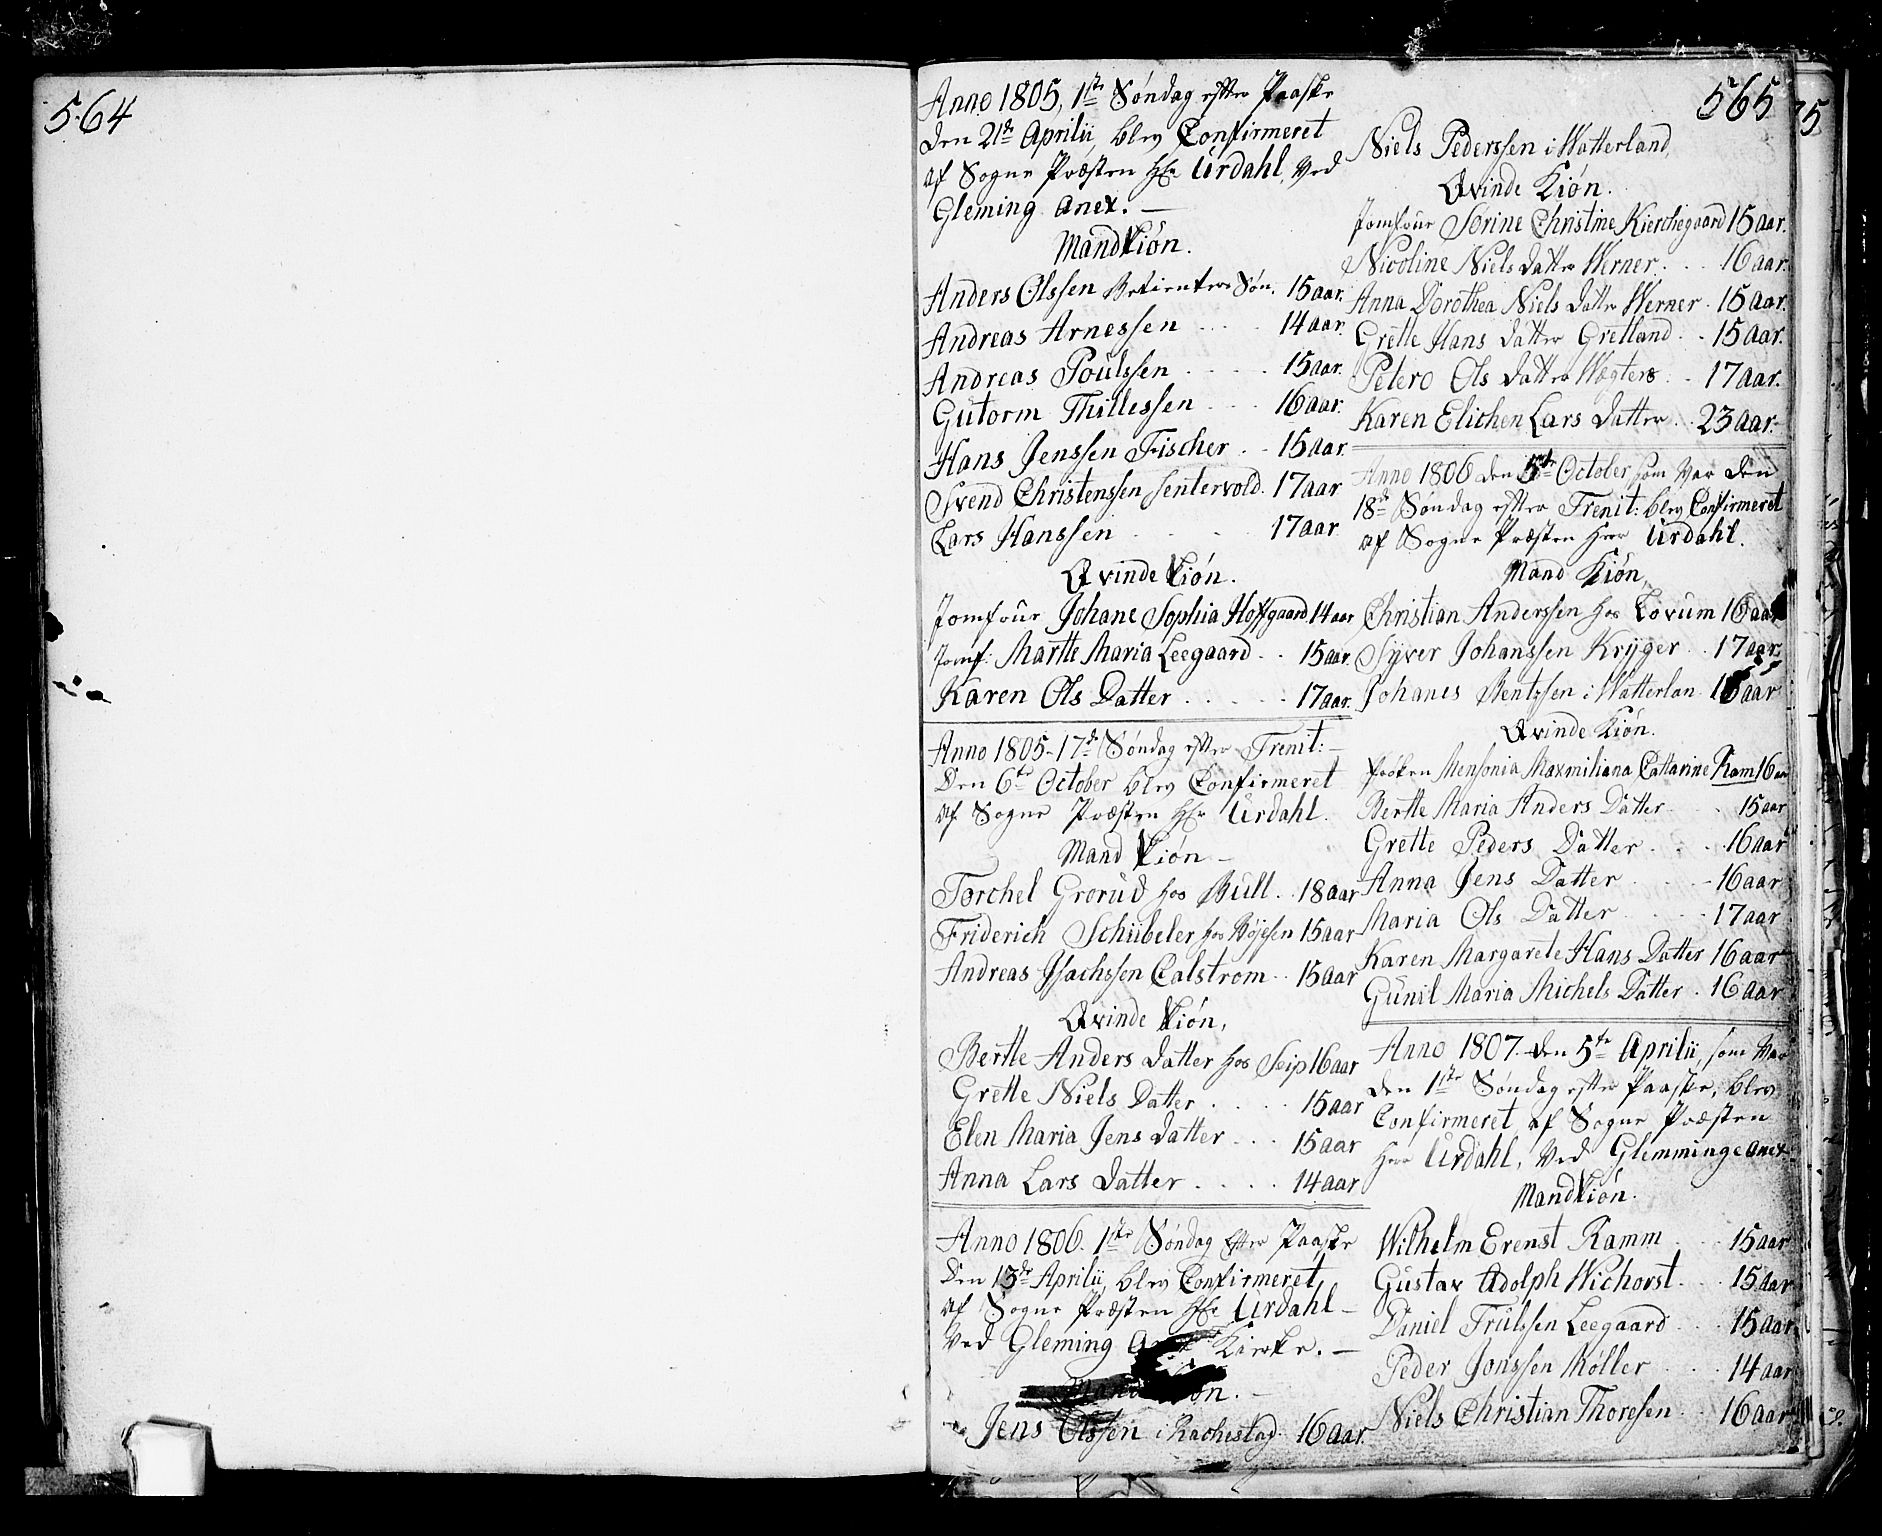 564
565
Anno 1805, 1ste Søndag efter Paaske
den 21de Aprilii, blev Confirmeret
af Sogne Præsten Hr Urdahl, Ved
Gleming Anex. —
Mandkiøn.
Anders Olssen Betienters Søn. 15 aar.
Andreas Arnessen . . . . 14 aar.
Andreas Poulssen . . . . 15 aar.
Gutorm Thillessen . . . 16 aar.
Hans Jenssen Fischer . . 15 aar.
Svend Christenssen Sentervold. 17 aar
Lars Hanssen . . . . 17 aar
Qvinde Kiøn.
Jomfrue Johane Sophia Hoffgaard 14 aar
Jomf: Marthe Maria Leegaard . . 15 aar.
Karen Ols Datter . . . . . 17 aar.
Anno 1805 - 17de Søndag efter Trenit: —
Den 6te October blev Confirmeret
af Sogne Præsten Hr Urdahl.
Mand Kiøn —
Torchel Grorud hos Bull . . 18 aar
Friderich Schübeler hos Böjesen 15 aar
Andreas Isachssen Calstrom . . 15 aar
Qvinde Kiøn,
Berthe Anders Datter hos Seip 16 aar
Grethe Niels Datter . . . . 15 aar
Elen Maria Jens Datter . . . 15 aar
Anna Lars Datter . . . . 14 aar
Anno 1806. 1ste Søndag Efter Paaske
Den 13de Aprilii, blev Confirmeret
af Sogne Præsten Hr Urdahl —
Ved Gleming Kirke. —
Mand Kiøn. —
Jens Olssen i Rachestad 16 aar.
Niels Pederssen i Watterland,
Qvinde Kiøn.
Jomfrue Sørine Christine Kierchegaard 15 aar.
Nicoline Niels Datter Werner . . . 16 aar.
Anna Dorothea Niels Datter Werner . 15 aar.
Grethe Hans Datter Gretland . . 15 aar.
Petero Ols Datter Wægters . . 17 aar.
Karen Elichen Lars Datter . . 23 aar.
Anno 1806 den 5te October som Var den
18de Søndag efter Trenit: blev Confirmeret
af Sogne Præsten Herr Urdahl.
Mand Kiøn,
Christian Anderssen hos Lorum 16 aar
Syver Johanssen Kryger . . 17 aar.
Johanes Bentzsen i Watterlan aar
Qvinde Kiøn.
Frøken Mensonia Maxmiliana Cattarine Ram 16 aar
Berthe Maria Anders Datter . . . 15 aar
Grethe Peders Datter . . . 16 aar
Anna Jens Datter . . . . 16 aar
Maria Ols Datter . . . . 17 aar
Karen Margarete Hans Datter 16 aar
Gunil Maria Michels Datter . 16 aar
Anno 1807. den 5te Aprilii, som Var
den 1ste Søndag efter Paaske, blev
Confirmeret af Sogne Præsten
Herr Urdahl, Ved Glemminge anex.
Mandkiøn.
Wilhelm Erenst Ramm . . . 15 aar
Gustav Adolph Wichorst . . . 15 aar
Daniel Trulssen Leegaard . . . 15 aar
Peder Jonssen Møller . . . 14 aar
Niels Christian Thoresen . . 16 aar